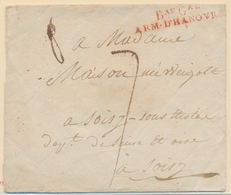 Bau Gal
ARM. D'HANOVRE
8
a Madame
Maison née Weigolt
a Soisy - sous Etiole
dept. de Seine et oise
7
à Soisy